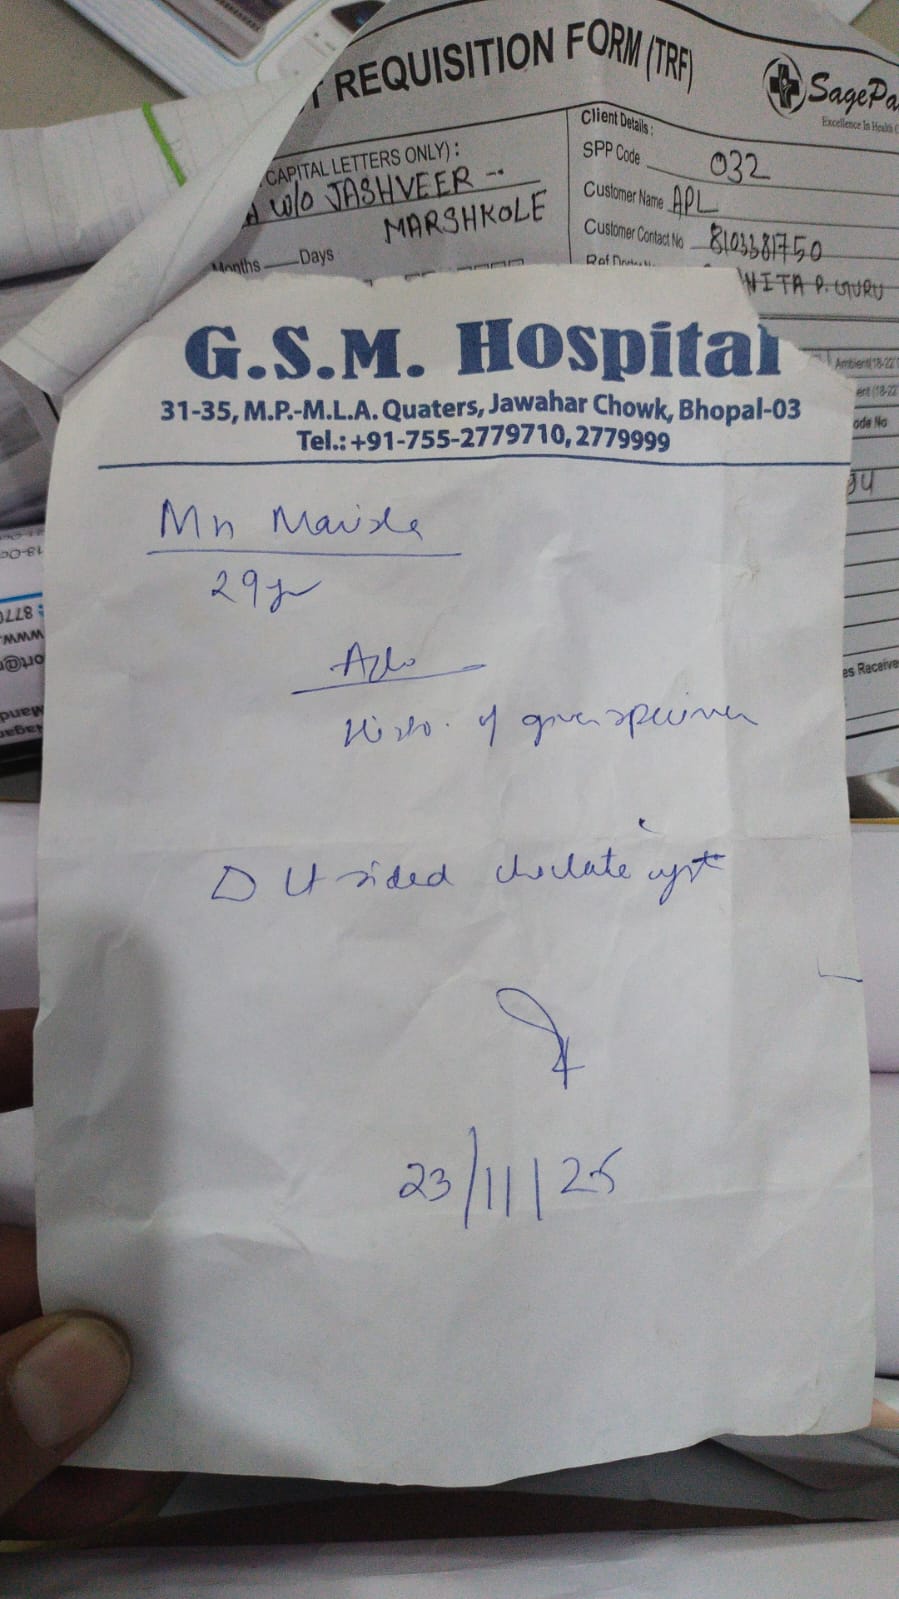 REQUISITION FORM (TRF)
SagePa
Excellence In Health C
CAPITAL LETTERS ONLY) :
W/O JASHVEER --
MARSHKOLE
Months Days
Client Details :
SPP Code 032
Customer Name APL
Customer Contact No 8103381750
NITA P. GURU
Ambient(18-22
ent (18-22
ode No
es Receive
G.S.M. Hospital
31-35, M.P.-M.L.A. Quaters, Jawahar Chowk, Bhopal-03
Tel.: +91-755-2779710, 2779999
29 yr
Adv
Histo. of given specimen
Lt sided choclate cyst
23/11/25